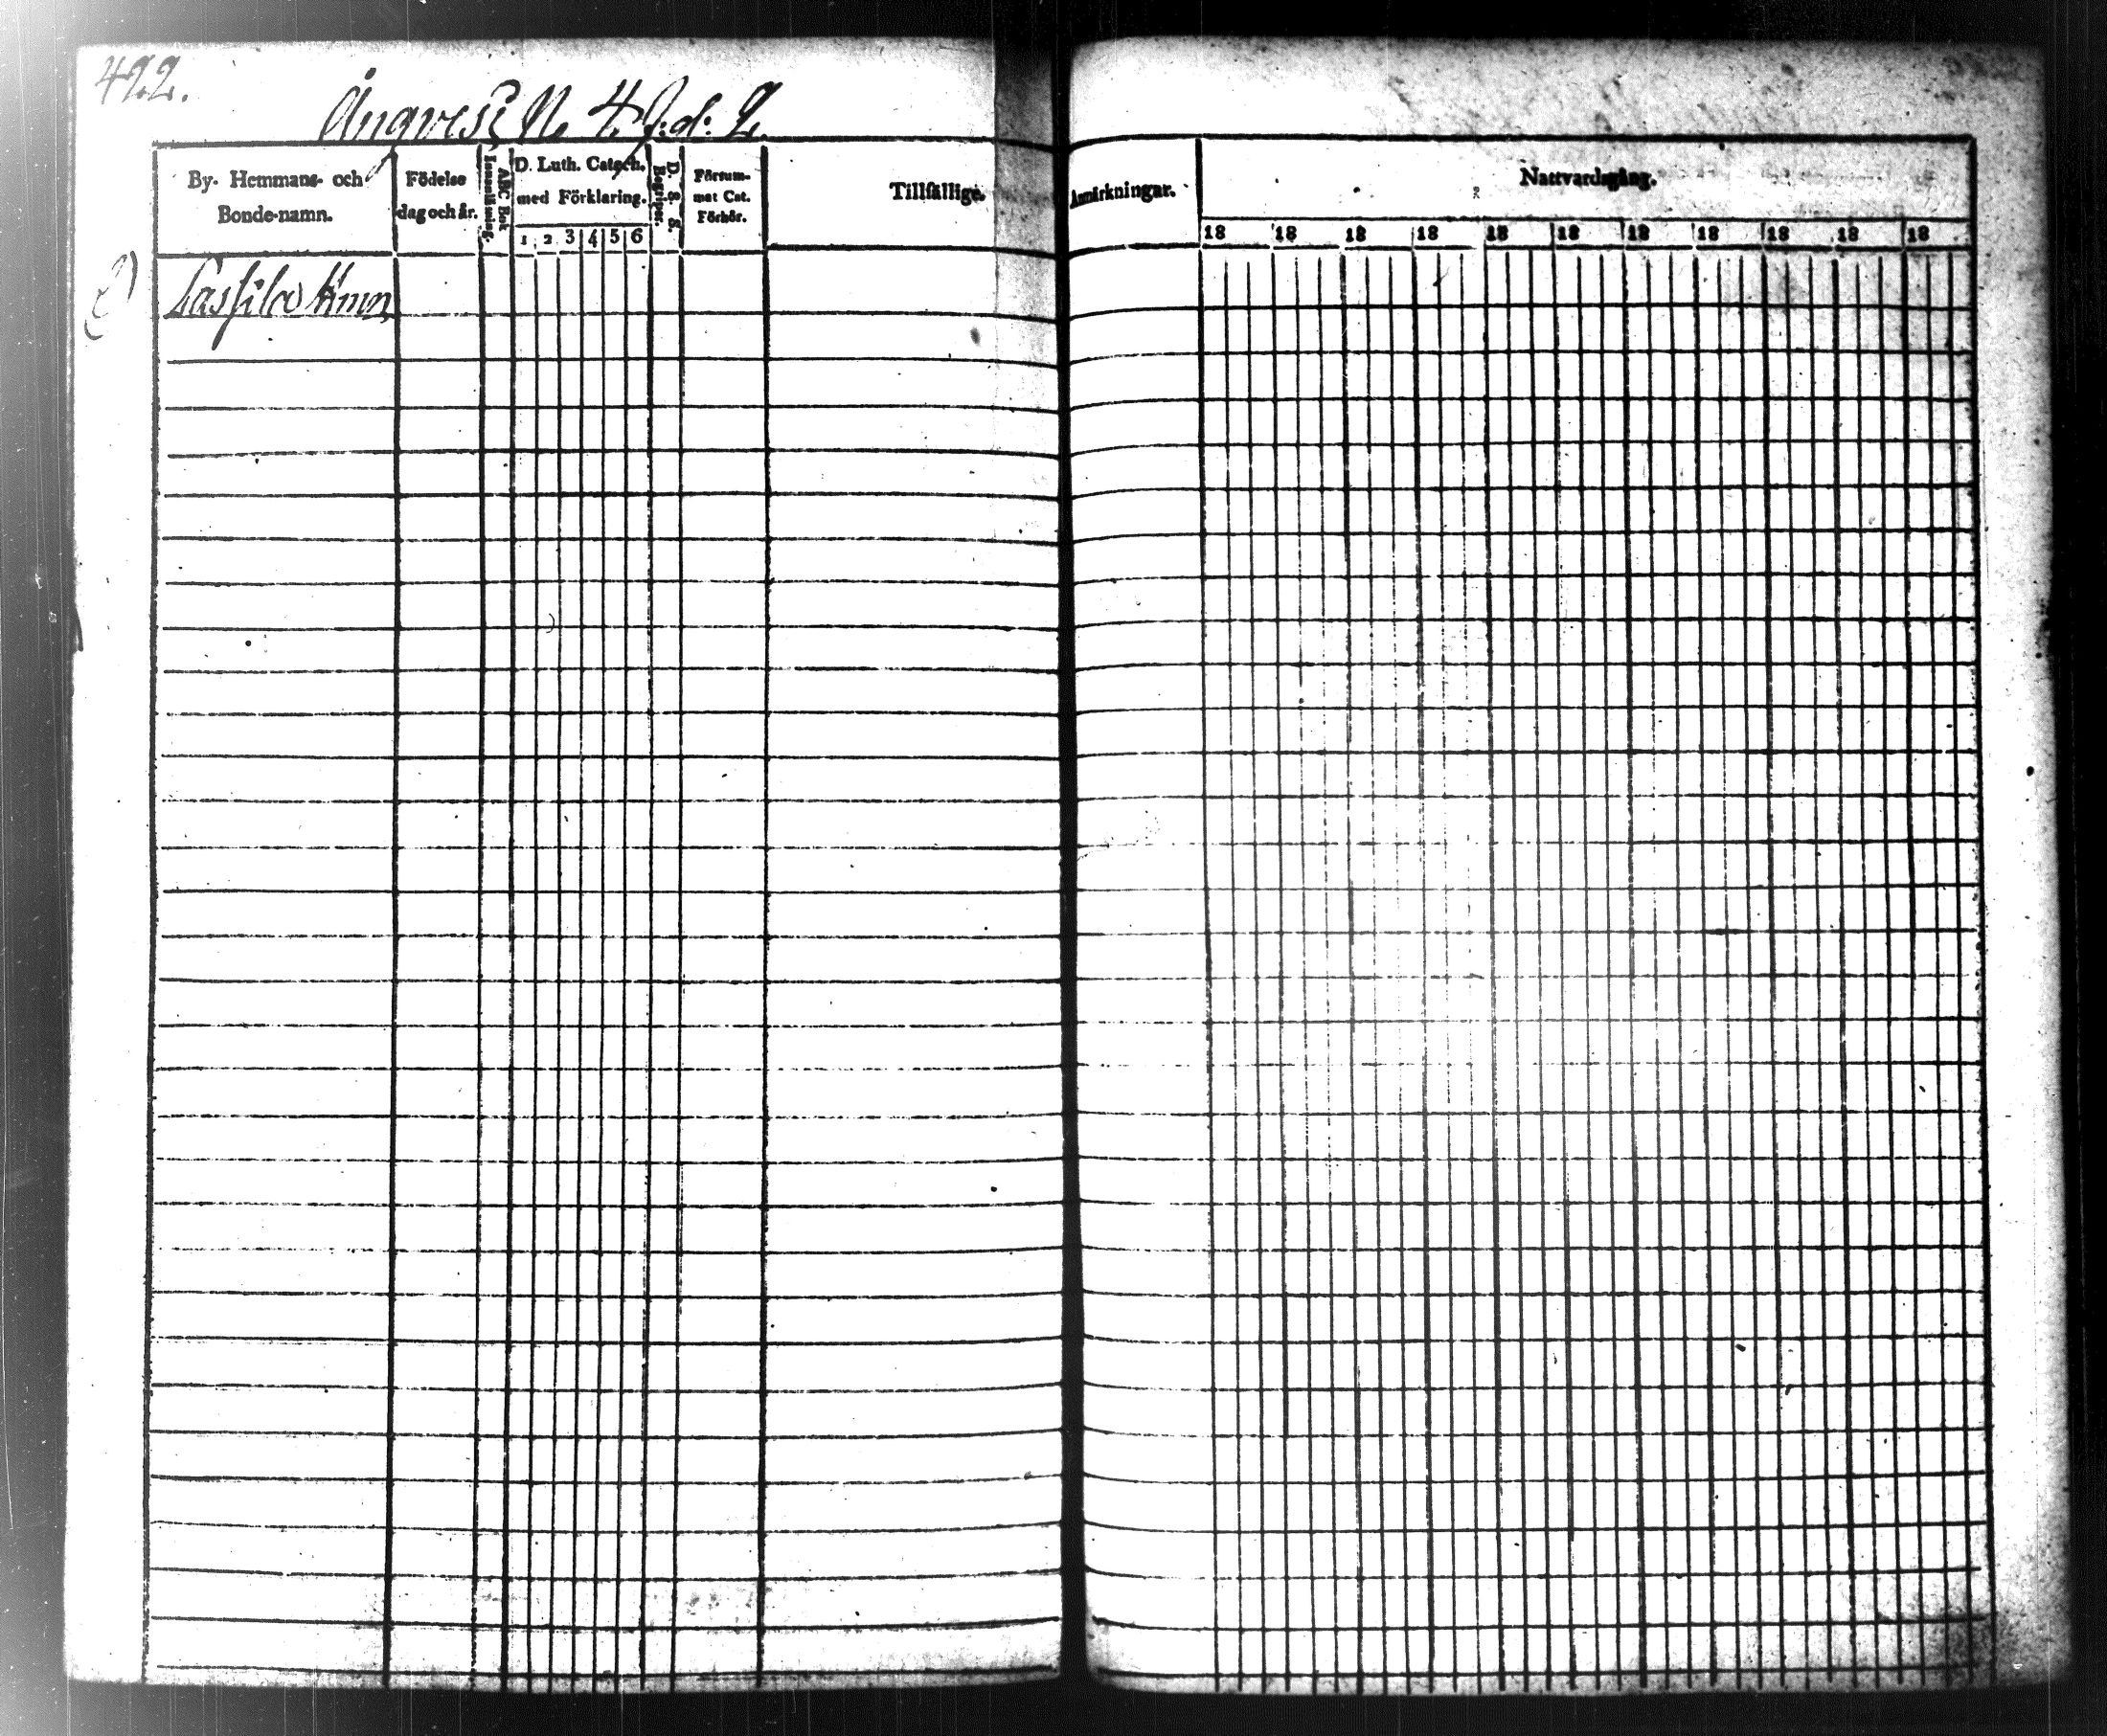 422.
Ångvesi N. 4. J:d: L.
By- Hemmans- och
Bonde-namn.
Födelse
dag och år.
ABC Bok
Innanläsning.
D. Luth. Catech.
med Förklaring.
1 2 3 4 5 6
D. S. S.
Begriper.
Försum-
mat Cat.
Förhör.
Tillfällige
Anmärkningar.
Nattvardsgång.
18 18 18 18 18 18 18 18 18 18 18
Lassila Hmn